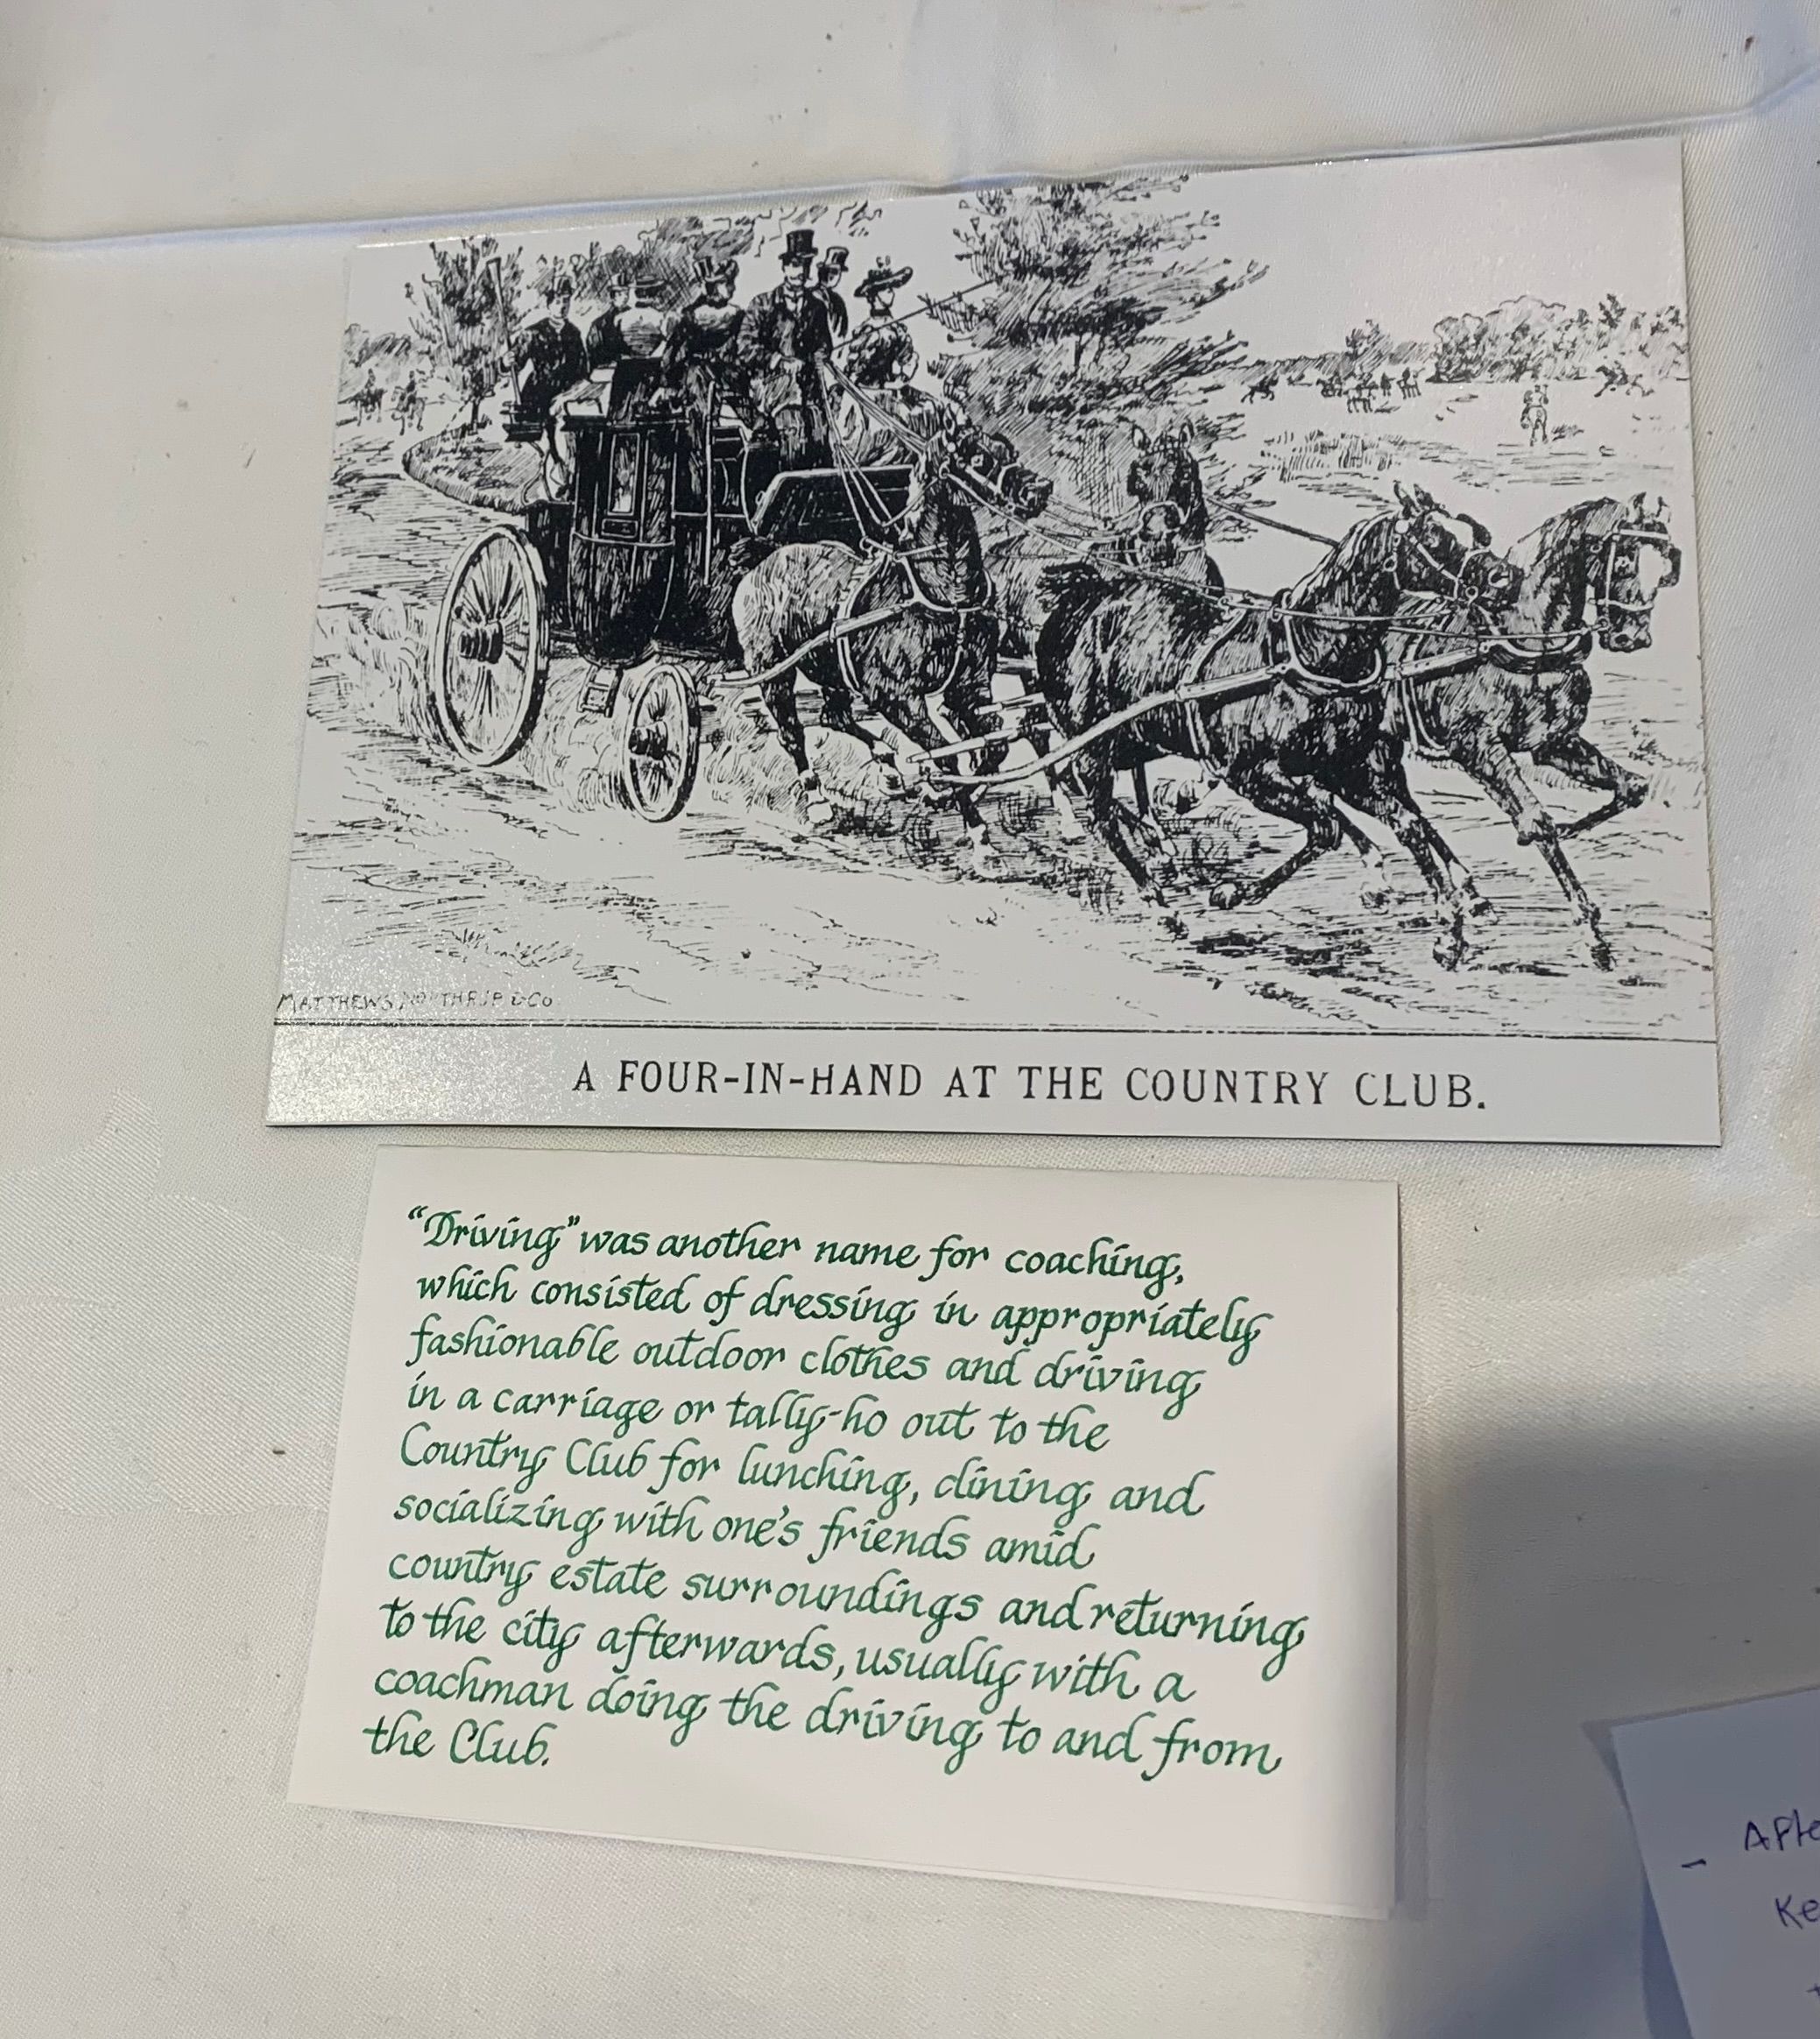 MATTHEWS NORTHRUP & Co
A FOUR-IN-HAND AT THE COUNTRY CLUB.
"Driving" was another name for coaching,
which consisted of dressing in appropriately
fashionable outdoor clothes and driving
in a carriage or tally-ho out to the
Country Club for lunching, dining and
socializing with one's friends amid
country estate surroundings and returning
to the city afterwards, usually with a
coachman doing the driving to and from
the Club.